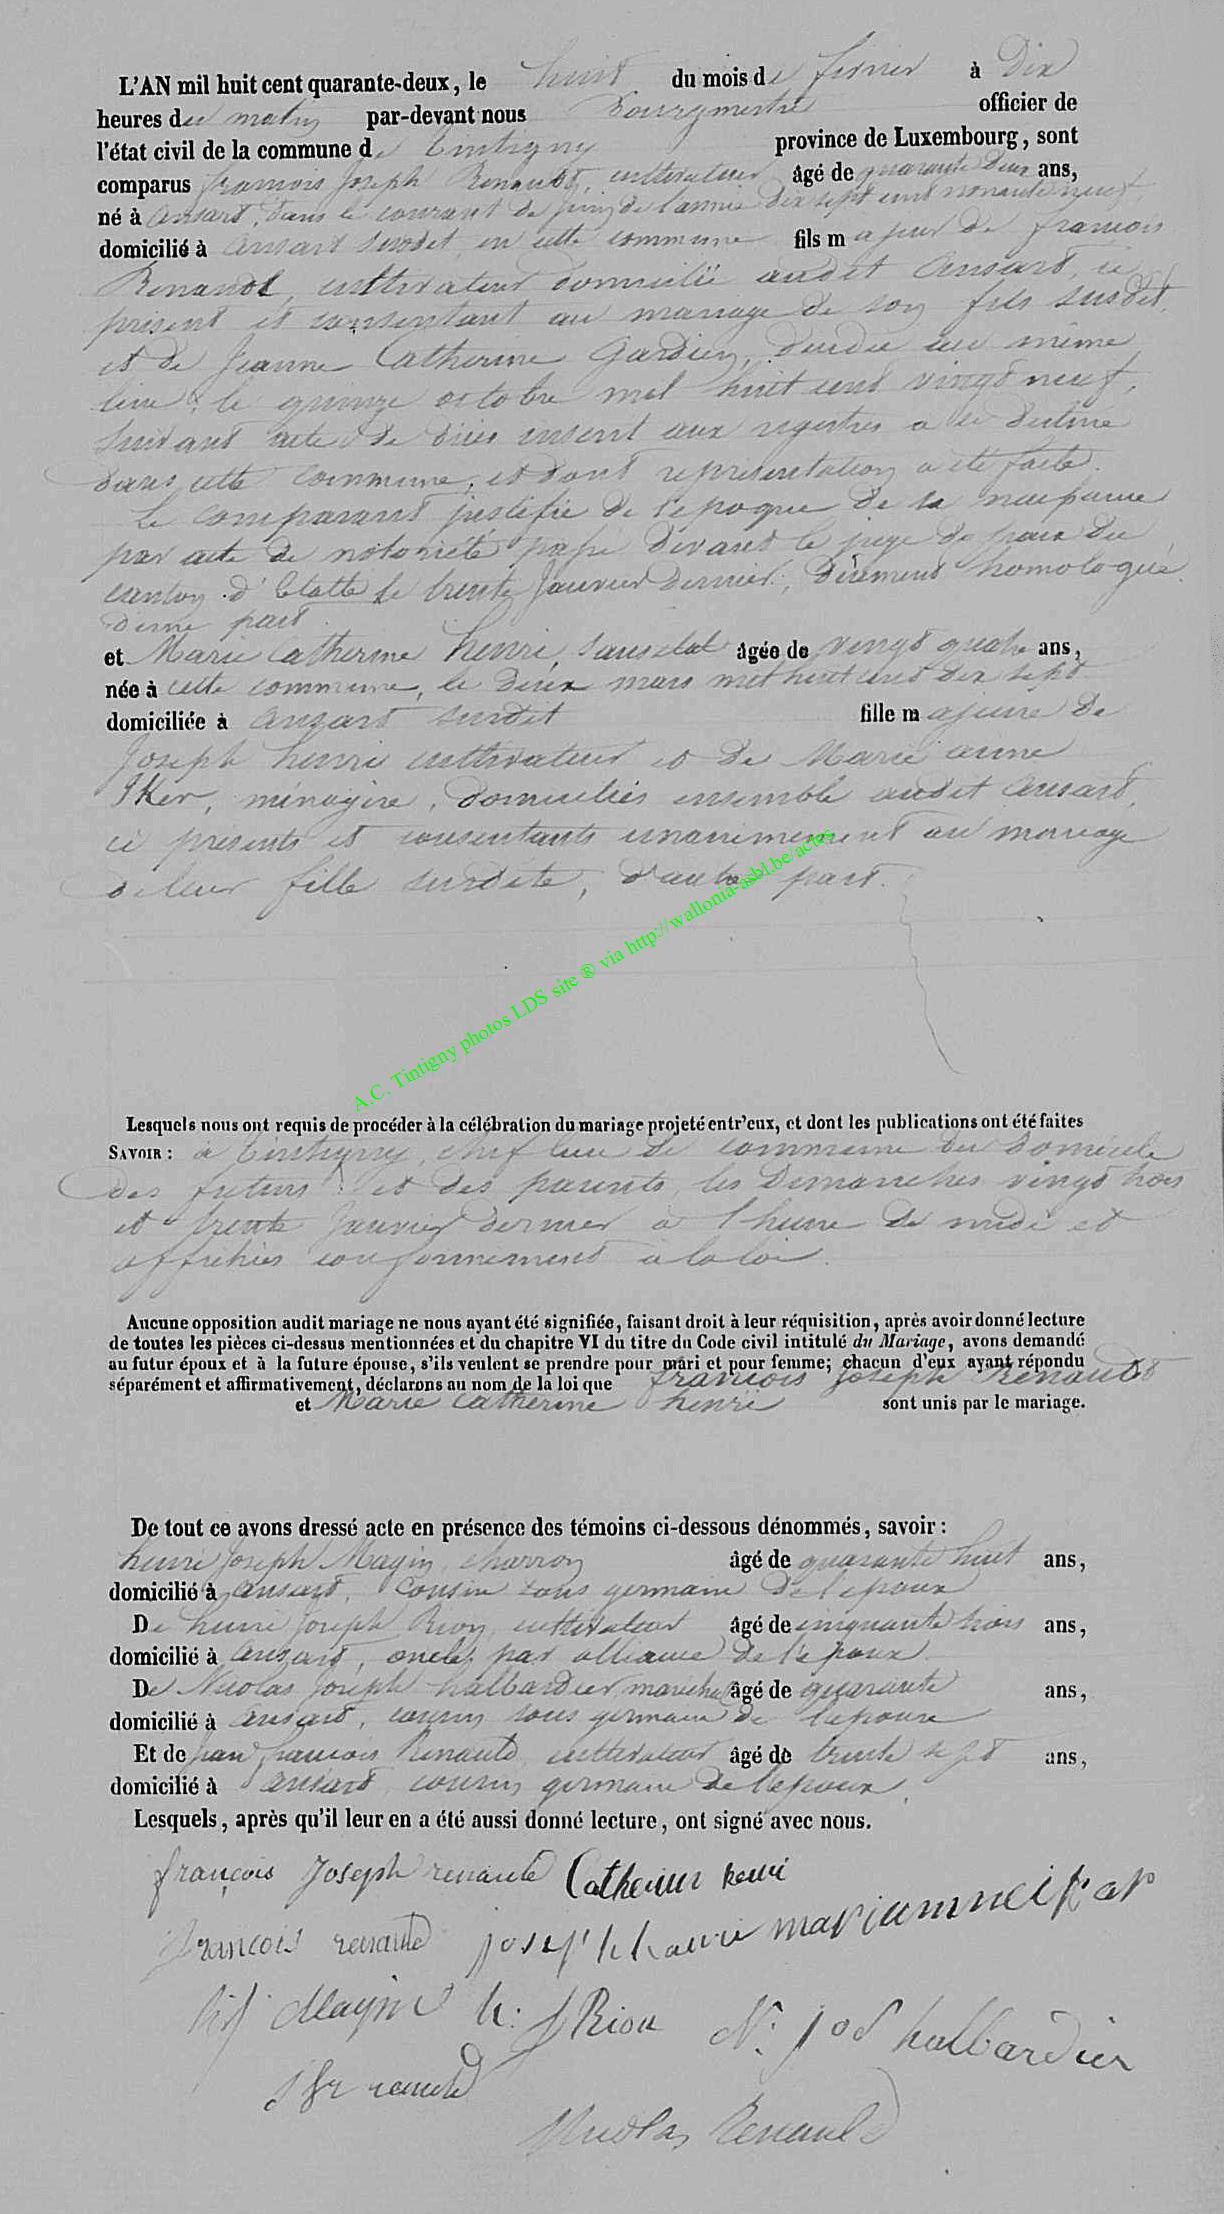 L'AN mil huit cent quarante-deux, le huit du mois de fevrier à Dix
heures du matin par-devant nous Bourgmestre officier de
l'état civil de la commune de Tintigny province de Luxembourg, sont
comparus francois Joseph Renauld, cultivateur âgé de quarante Deux ans,
né à ansart, dans le courant de juin de l'année dix sept cent nonante neuf
domicilié à ansart susdit en cette commune fils majeur de francois
Renauld, cultivateur domicilié audit ansart, ci
présent et consentant au mariage de son fils susdit,
et de Jeanne Catherine Gardien, décédée au même
lieu, le quinze octobre mil huit cent vingt neuf,
suivant acte de décès inscrit aux registres a ce destiné
dans cette commune, et dont représentation a été faite.
Le comparant justifie de l'epoque de sa naissance
par acte de notoriété passé devant le juge de paix du
canton d'Etalle le trente Janvier dernier, dûement homologué
d'une part
et Marie Catherine henri, sans etat âgée de vingt quatre ans,
née à cette commune, le deux mars mil huit cent dix sept
domiciliée à ansart susdit fille majeure de
Joseph henri cultivateur et de Marie anne
Iker, ménagère, domiciliés ensemble audit ansart,
ci presents et consentants unanimement au mariage
de leur fille susdite, d'autre part.
A.C. Tintigny photos LDS site ® via http://wallonia-asbl.be/actes
Lesquels nous ont requis de procéder à la célébration du mariage projeté entr'eux, et dont les publications ont été faites
SAVOIR : à Tintigny, chef lieu de commune du domicile
des futurs et des parents, les Dimanches vingt trois
et trente Janvier dernier à l'heure de midi et
affichées conformement à la loi.
Aucune opposition audit mariage ne nous ayant été signifiée, faisant droit à leur réquisition, après avoir donné lecture
de toutes les pièces ci-dessus mentionnées et du chapitre VI du titre du Code civil intitulé du Mariage, avons demandé
au futur époux et à la future épouse, s'ils veulent se prendre pour mari et pour femme; chacun d'eux ayant répondu
séparément et affirmativement, déclarons au nom de la loi que francois Joseph Renauld
et Marie Catherine henri sont unis par le mariage.
De tout ce avons dressé acte en présence des témoins ci-dessous dénommés, savoir :
henri Joseph Magin, charron âgé de quarante huit ans,
domicilié à ansart, cousin sous germain de l'epoux
De henri Joseph Rion, cultivateur âgé de cinquante trois ans,
domicilié à ansart, oncle par alliance de l'epoux
De Nicolas Joseph halbardier, maréchal âgé de quarante ans,
domicilié à ansart, cousin sous germain de l'epoux
Et de jean francois Renauld, cultivateur âgé de trente sept ans,
domicilié à ansart, cousin germain de l'epoux
Lesquels, après qu'il leur en a été aussi donné lecture, ont signé avec nous.
françois Joseph renauld Catherine henri
francois renauld joseph henri mariannei ker
h J Magin h: J Rion N: jos halbardier
J fr renauld
Nicolas Renauld